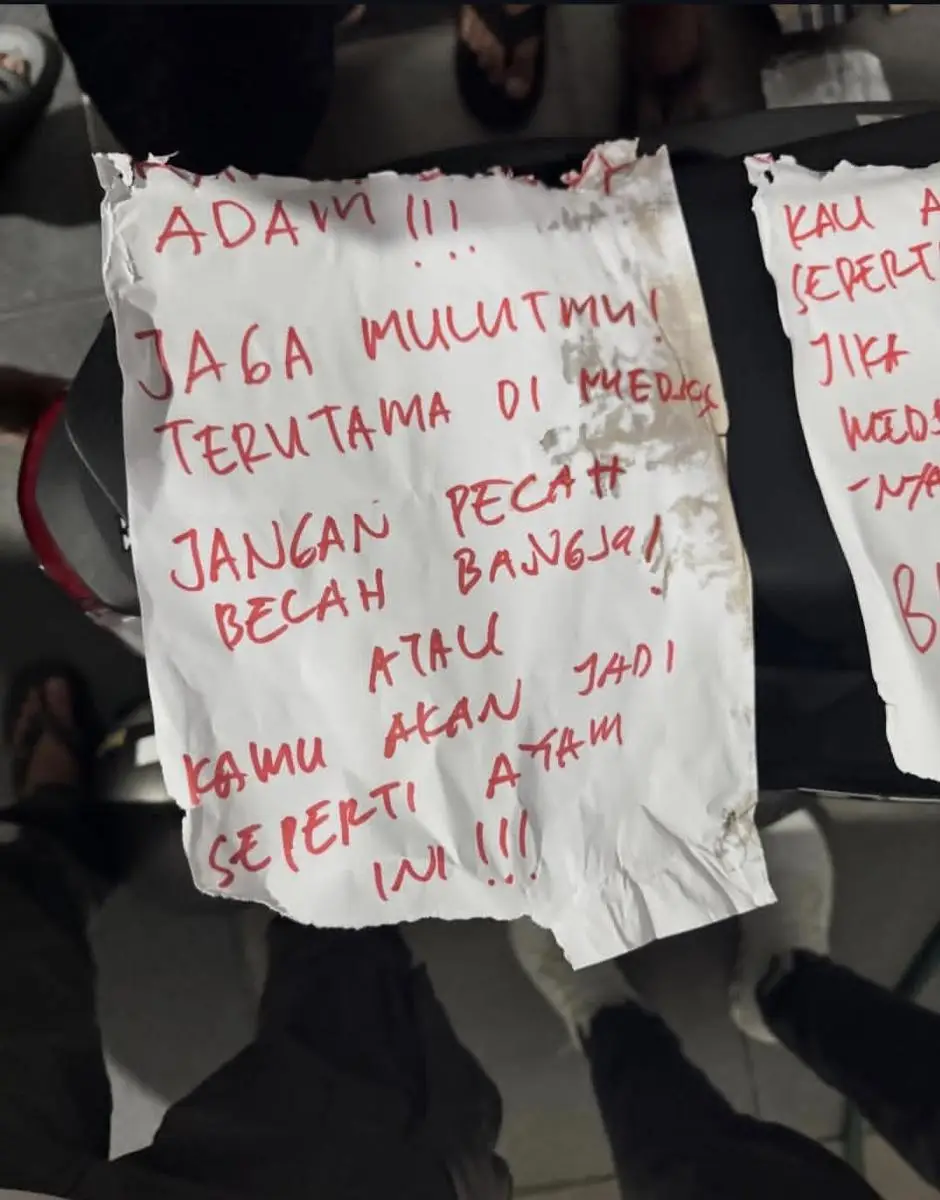 ADAM !!!
JAGA MULUTMU!
TERUTAMA DI MEDSOS
JANGAN PECAH
BECAH BANGSA!
ATAU
KAMU AKAN JADI
SEPERTI AYAM
INI !!!
KAU A
SEPERTI
JIKA
MEDS
-NYA
B